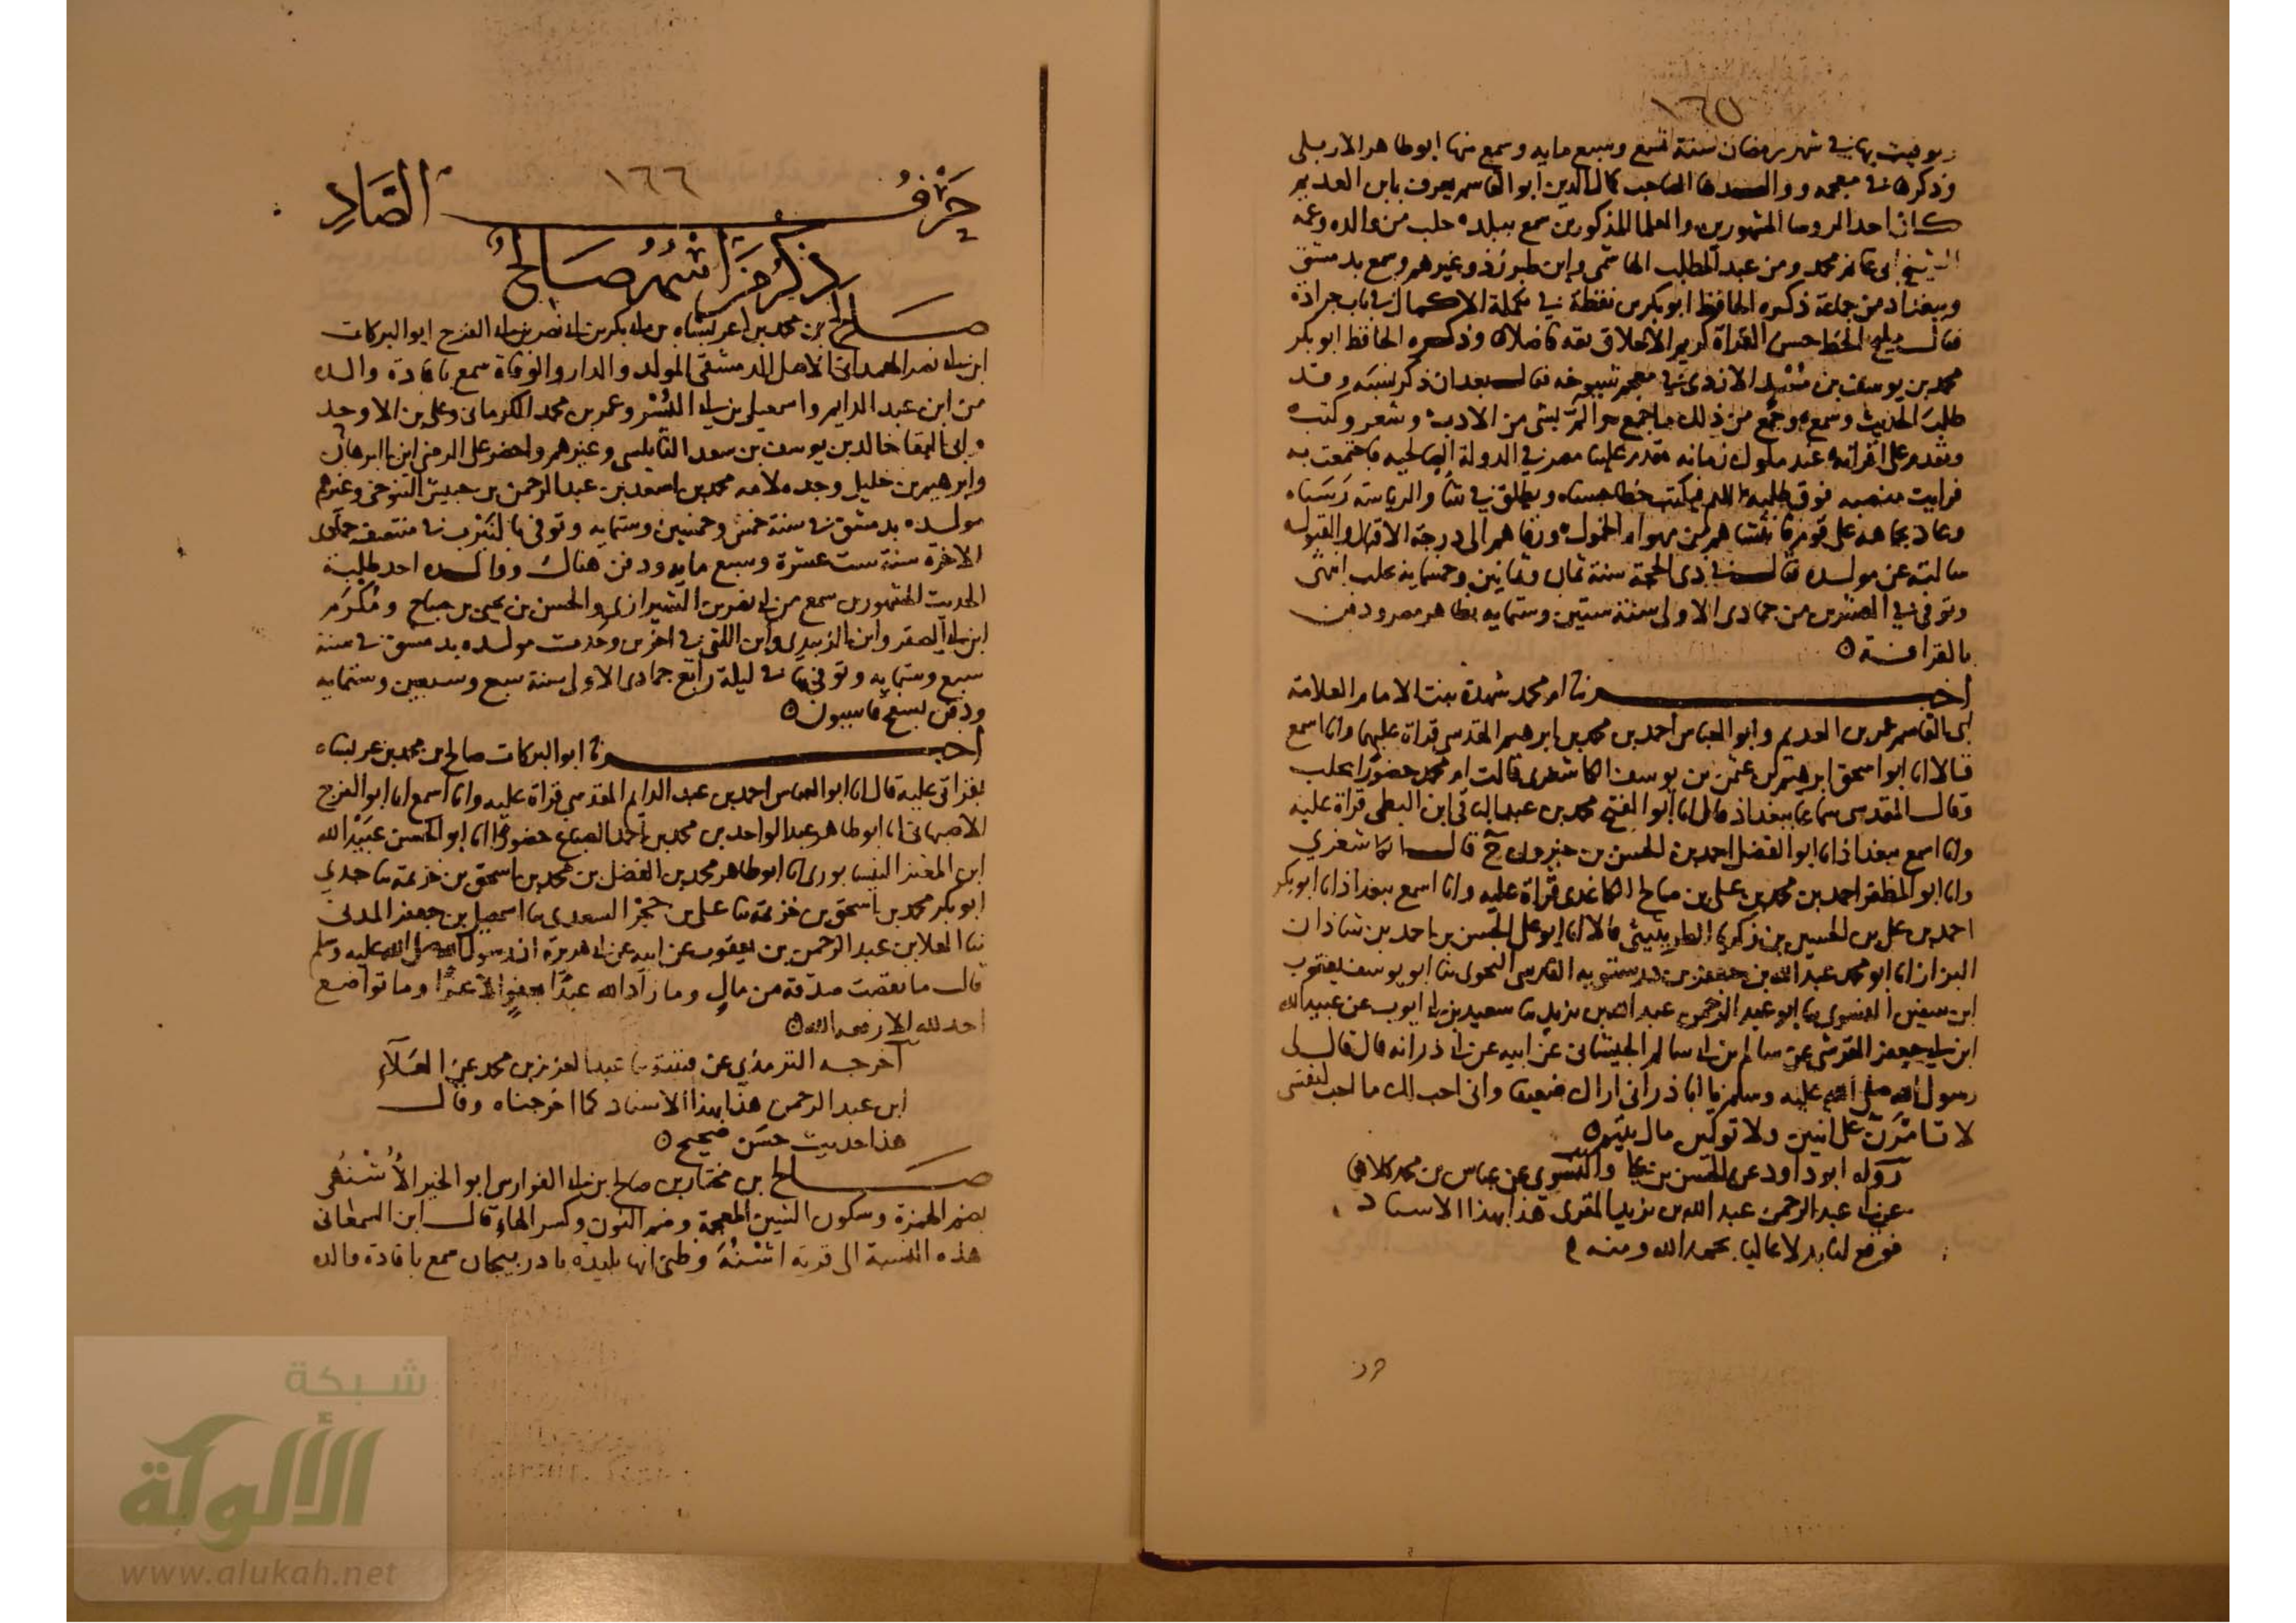 ١٦٥
وتوفيت بها في شهر رمضان سنة تسع وسبع مايه وسمع منها ابو طاهر الاربلي
وذكرها في معجمه ووالدها الصاحب كمال الدين ابو القاسم يعرف بابن العديم
كان احد الروسا المشهورين والعلما المذكورين سمع ببلده حلب من والده وعمه
الشيخ ابي غانم محمد ومن عبد المطلب الهاشمي وابن طبرزذ وغيرهم وسمع بدمشق
وببغداد من جماعة ذكره الحافظ ابو بكر بن نقطة في تكملة الاكمال في باب جرادة
فقال مليح الخط حسن القراة كريم الاخلاق ثقة فاضلا وذكره الحافظ ابو بكر
محمد بن يوسف بن مسدي الازدي في معجم شيوخه فقال بعد ان ذكر نسبه وقد
طلب الحديث وسمع وجمع من ذلك ما جمع والمّ بشي من الادب وشعر وكتب
وتقدم على اقرانه عند ملوك زمانه قدم علينا مصر في الدولة الصالحيه فاجتمعت به
فرايت منصبه فوق طلبه
وعاد بجاهه على قوم
سالته عن مولده فقال في ذي الحجة سنة ثمان وثمانين وخمسمايه بحلب انتهى
وتوفي في العشرين من جمادى الاولى سنة ستين وستمايه بظاهر مصر ودفن
بالقرافة ٥
اخبرتنا ام محمد شهدة بنت الامام العلامة
ابي القاسم عمر بن العديم وابو العباس احمد بن محمد بن ابرهيم المقدسي قراة عليهما وانا اسمع
قالا انا ابو اسحق ابرهيم بن عثمن بن يوسف الكاشغري قالت ام محمد حضورا بحلب
وقال المقدسي سماعا ببغداذ قال انا ابو الفتح محمد بن عبد الباقي ابن البطي قراة عليه
وانا اسمع ببغداذ انا ابو الفضل احمد بن الحسن بن خيرون ح قال الكاشغري
وانا ابو المظفر احمد بن محمد بن علي بن صالح الكاغدي قراة عليه وانا اسمع ببغداذ انا ابو بكر
احمد بن علي بن الحسين بن زكريا الطريثيثي قالا انا ابو علي الحسن بن احمد بن شاذان
البزاز انا ابو محمد عبد الله بن جعفر بن درستويه الفارسي النحوي ثنا ابو يوسف يعقوب
ابن سفين الفسوي ثنا ابو عبد الرحمن عبد الله بن يزيد ثنا سعيد بن ابي ايوب عن عبيد الله
ابن ابي جعفر القرشي عن سالم بن ابي سالم الجيشاني عن ابيه عن ابي ذر انه قال قال لي
رسول الله صلى الله عليه وسلم يا ابا ذر اني اراك ضعيفا واني احب لك ما احب لنفسي
لا تامّرنّ على اثنين ولا تولين مال يتيم ٥
رواه ابو داود عن الحسن بن علي والنسوي عن عباس بن محمد كلاهما
عن ابي عبد الرحمن عبد الله بن يزيد المقري هذا بهذا الاسناد
فوقع لنا بدلا عاليا بحمد الله ومنه
حرف
١٦٦
حَرْفُ الصَّادِ
ذكر من اسمه صالح
صالح بن محمد بن عربشاه بن ابي بكر بن ابي نصر بن ابي الفرج ابو البركات
ابن ابي نصر الهمداني الاصل الدمشقي المولد والدار والوفاة سمع بافادة والده
من ابن عبد الدايم واسمعيل بن ابي اليسر وعمر بن محمد الكرماني وعلي بن الاوحد
وابي البقا خالد بن يوسف بن سعد النابلسي وغيرهم واحضر على الرضي ابن البرهان
وابرهيم بن خليل وجده لامه محمد بن اسعد بن عبد الرحمن بن حبيش التنوخي وغيرهم
مولده بدمشق في سنة خمس وخمسين وستمايه وتوفي بالنيرب في منتصف جمادى
الاخرة سنة ست عشرة وسبع مايه ودفن هناك ووالده احد طلبة
الحديث المشهورين سمع من ابي نصر بن الشيرازي والحسن بن يحيى بن صباح ومُكْرَم
ابن ابي الصقر وابن الزبيدي وابن اللتي في اخرين وحدث مولده بدمشق في سنة
سبع وستمايه وتوفي بها في ليلة رابع جمادى الاولى سنة سبع وسبعين وستمايه
ودفن بسفح قاسيون ٥
اخبرنا ابو البركات صالح بن محمد بن عربشاه
بقراتي عليه قال انا ابو العباس احمد بن عبد الدايم المقدسي قراة عليه وانا اسمع انا ابو الفرج
الاصبهاني انا ابو طاهر عبد الواحد بن محمد بن احمد الصباغ حضورا انا ابو الحسن عبيد الله
ابن المعتز النيسابوري انا ابو طاهر محمد بن الفضل بن محمد بن اسحق بن خزيمة ثنا جدي
ابو بكر محمد بن اسحق بن خزيمة ثنا علي بن حجر السعدي ثنا اسمعيل بن جعفر المدني
ثنا العلا بن عبد الرحمن بن يعقوب عن ابيه عن ابي هريرة ان رسول الله صلى الله عليه وسلم
قال ما نقصت صدقة من مال وما زاد الله عبدًا بعفوٍ الا عزا وما تواضع
احد لله الا رفعه الله ٥
اخرجه الترمذي عن قتيبة ثنا عبد العزيز بن محمد عن العَلآءِ
ابن عبد الرحمن هذا بهذا الاسناد كما اخرجناه وقال
هذا حديث حسن صحيح ٥
صالح بن مختار بن صالح بن ابي الفوارس ابو الخير الأُشْنُهي
بضم الهمزة وسكون الشين المعجمة وضم النون وكسر الهاء قال ابن السمعاني
هذه النسبة الى قرية اشْنُهَ وظني انها بليدة باذربيجان سمع بافادة والده
شبكة
الألوكة
www.alukah.net